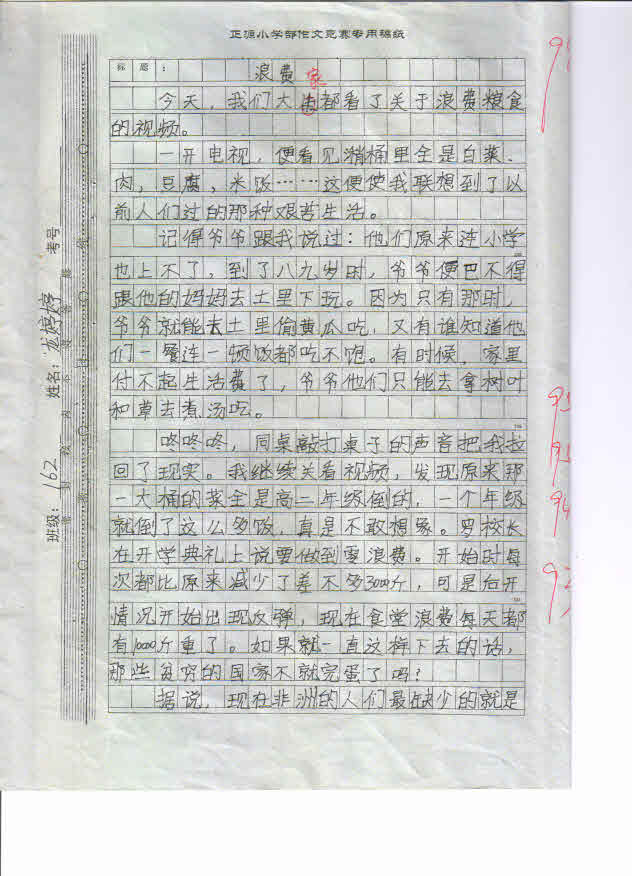 正源小学部作文竞赛专用稿纸
标题：
浪费
家
今天，我们大都看了关于浪费粮食
的视频。
一开电视，便看见潲桶里全是白菜、
肉，豆腐，米饭……这便使我联想到了以
前人们过的那种艰苦生活。
记得爷爷跟我说过：他们原来连小学
也上不了，到了八九岁时，爷爷便巴不得
跟他的妈妈去土里下玩。因为只有那时，
爷爷就能去土里偷黄瓜吃，又有谁知道他
们一连一顿饭都吃不饱。有时候，家里
付不起生活费了，爷爷他们只能去拿树叶
和草去煮汤吃。
咚咚咚，同桌敲打桌子的声音把我拉
回了现实。我继续关看视频，发现原来那
一大桶的菜全是高二年级倒的，一个年级
就倒了这么多饭，真是不敢想象。罗校长
在开学典礼上说要做到零浪费。开始时每
次都比原来减少了差不多3000斤，可是后开
情况开始出现反弹，现在食堂浪费每天都
有1000斤重了。如果就一直这样下去的话，
那些贫穷的国家不就完蛋了吗？
据说，现在非洲的人们最缺少的就是
班级：162
姓名：龙婷婷
考号